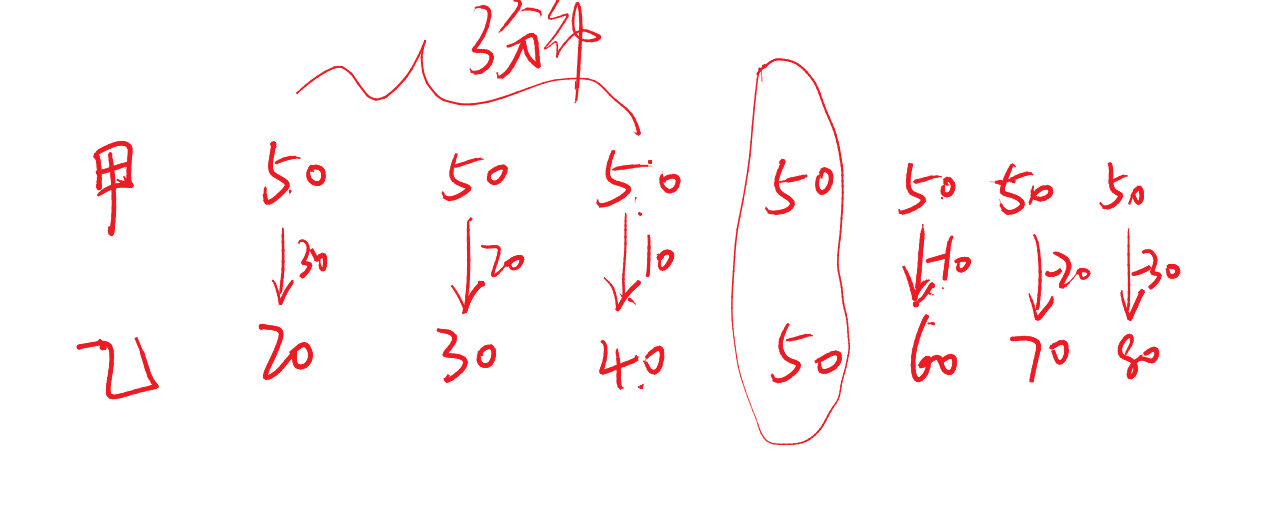 3分钟
甲 50 50 50 50 50 50 50
30 20 10 -10 -20 -30
乙 20 30 40 50 60 70 80